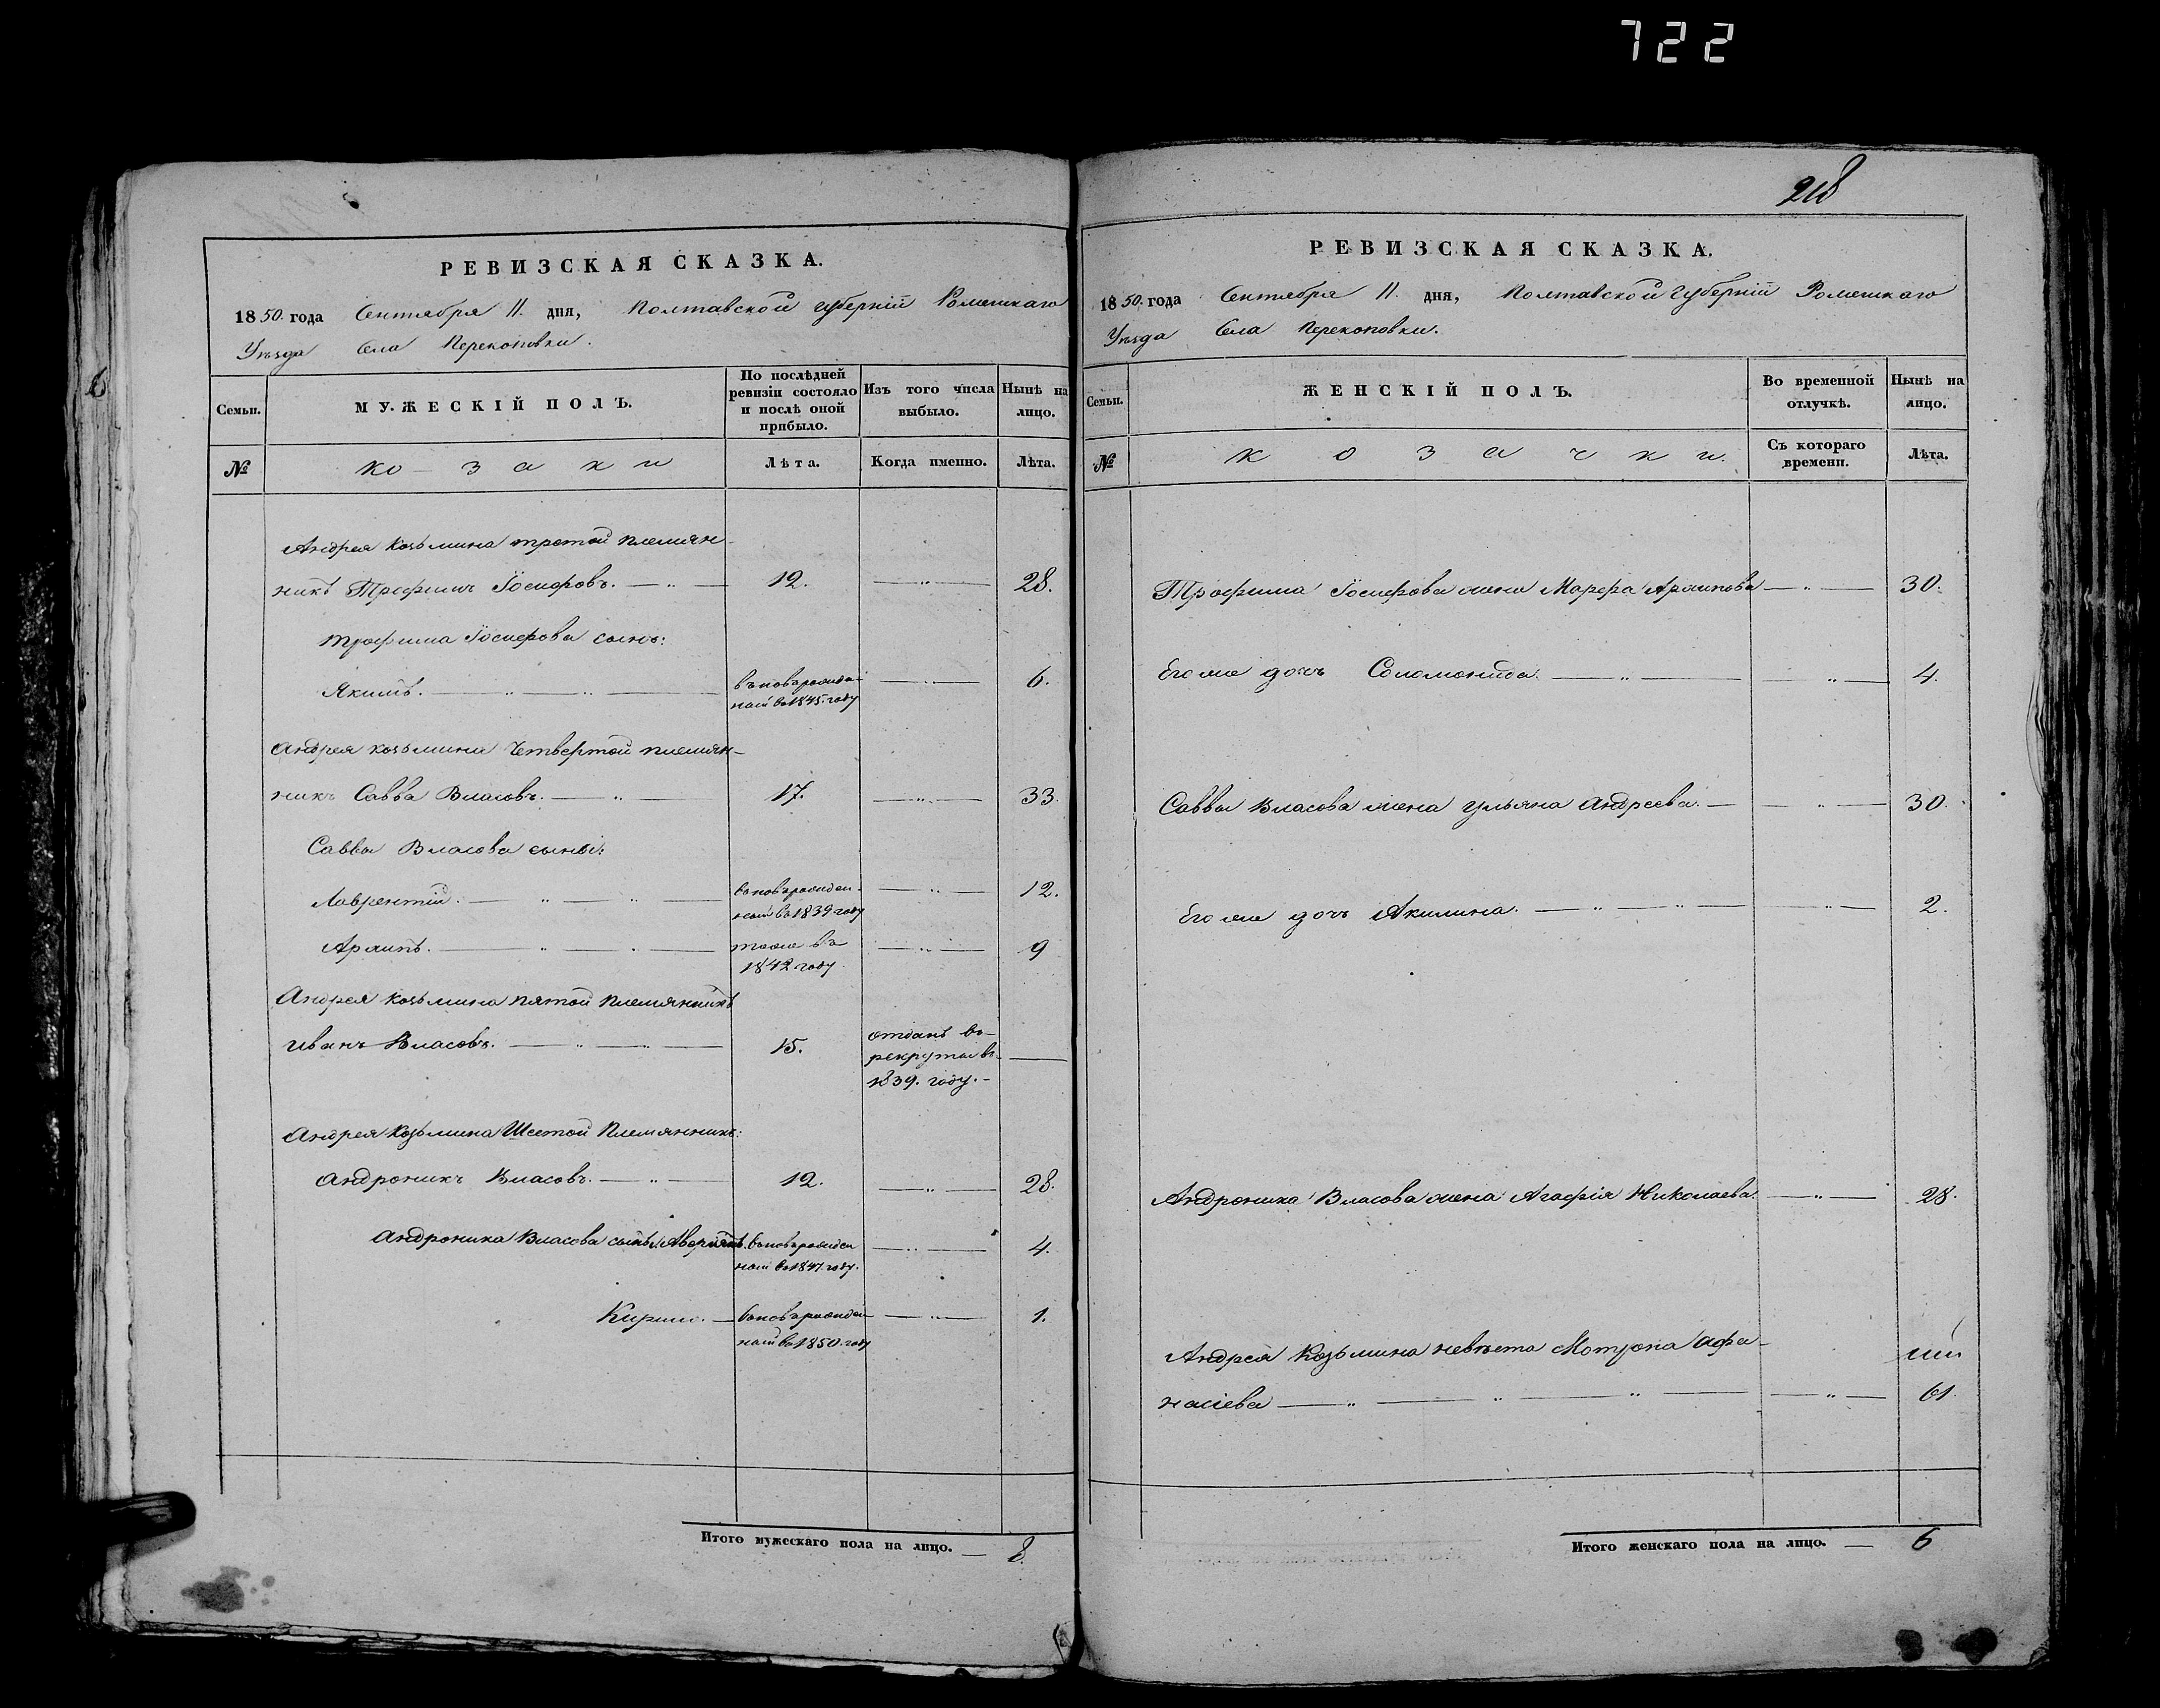 722
218
РЕВИЗСКАЯ СКАЗКА.
1850. года Сентября 11. дня, Полтавской Губерніи Роменскаго
Уѣзда Села Перекоповки.
Семьи.
МУЖЕСКІЙ ПОЛЪ.
По послѣдней ревизіи состояло и послѣ оной прибыло.
Изъ того числа выбыло.
Нынѣ на лицо.
№
козаки
Лѣта.
Когда именно.
Лѣта.
Андрея Козьмина третой племян-
никъ Трофимъ Іосифовъ. 12. 28.
Трофима Іосифова сынъ:
Якимъ. вновьрожден-
ной въ 1845. году 6.
Андрея Козьмина Четвертой племян-
никъ Савва Власовъ. 17. 33.
Саввы Власова сыны:
Лаврентій. вновьрожден-
ной въ 1839 году 12.
Архипъ. тоже въ
1842 году 9
Андрея Козьмина пятой племянникъ
Иванъ Власовъ. 15. отданъ въ
рекруты въ
1839. году.
Андрея Козьмина Шестой Племянникъ:
Андроникъ Власовъ. 12. 28.
Андроника Власова сыны: Аверіянъ. вновьрожден
ной въ 1847. году. 4.
Кирило. вновьрожден
ной въ 1850. году 1.
Итого мужескаго пола на лицо. 8.
РЕВИЗСКАЯ СКАЗКА.
1850. года Сентября 11. дня, Полтавской Губерніи Роменскаго
Уѣзда Села Перекоповки.
Семьи.
ЖЕНСКІЙ ПОЛЪ.
Во временной отлучкѣ.
Нынѣ на лицо.
№
козачки.
Съ котораго времени.
Лѣта.
Трофима Іосифова жена Марфа Архипова 30.
Его же дочь Соломонида. 4.
Саввы Власова жена Ульяна Андреева. 30.
Его же дочь Акилина. 2.
Андроника Власова жена Агафія Николаева. 28.
Андрея Козьмина невѣста Мотрона Афа-
насіева 61.
Итого женскаго пола на лицо. 6